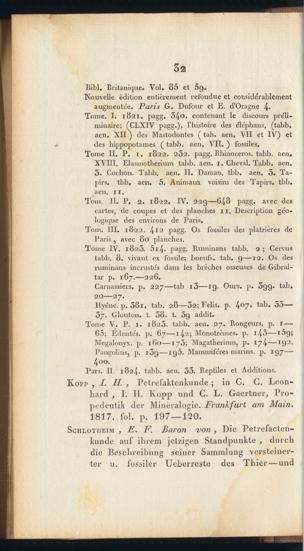 32
Bibl. Britanique. Vol. 85 et 59.
Nouvelle édition entièrement refondue et considérablement
augmentée. Paris G. Dufour et E. d'Oragne 4.
Tome. I. 1821. pagg. 340. contenant le discours préli-
minaire; (CLXIV pagg.), l'histoire des éléphans, (tabb.
aen. XII) des Mastodontes (tab. aen. VII et IV) et
des hippopotames (tabb. aen, VII.) fossiles.
Tome II, P. 1. 1822. 232. pagg. Rhinoceros. tabb. aen.
XVIII, Elasmotherium tabb. aen. 1. Cheval. Tabb. aen.
3. Cochon. Tabb. aen. II. Daman, tbb. aen. 3. Ta-
pirs. tbb, aen. 5. Animaux voisins des Tapirs. tbb.
aen. 11.
Tom. II. P. 2. 1822. IV. 229—648 pagg. avec des
cartes, de coupes et des planches 11. Description géo-
logique des environs de Paris.
Tom. III. 1822. 412 pagg. Os fossiles des platrières de
Paris, avec 80 planches.
Tome IV. 1823. 514. pagg. Ruminans tabb. 2; Cervus
tabb. 8. vivant ex fossile; boeufs. tab. 9—12. Os des
ruminans incrustés dans les brèches osseuses de Gibral-
tar p. 167.—226.
Carnassiers, p. 227—tab 13—19. Ours. p. 399. tab.
20—27.
Hyéne. p. 381. tab. 28—32; Felis. p. 407. tab. 33—
37. Glouton. t. 38. t. 39 addit.
Tome V. P. 1. 1823. tabb. aen. 27. Rongeurs. p. 1—
65; Édentés. p. 67—142; Monotrèmes. p. 143—159;
Megalonyx. p. 160—173; Magatherium, p. 174—192.
Pangolins, p. 193—195. Mammiféres marins. p. 197—
400.
Pars. II. 1824. tabb. aen. 33. Reptiles et Additions.
Kopp, I. H., Petrefaktenkunde; in C. C. Leon-
hard, I. H. Kopp und C. L. Gaertner, Pro-
pedeutik der Mineralogie. Frankfurt am Main.
1817. fol. p. 197—120.
Schlotheim, E. F. Baron von, Die Petrefacten-
kunde auf ihrem jetzigen Standpunkte, durch
die Beschreibung seiner Sammlung versteiner-
ter u. fossiler Ueberreste des Thier—und